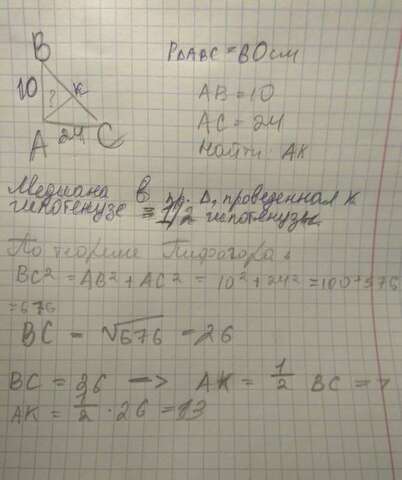 B
P△ABC = 60см
10
?
К
AB = 10
AC = 24
A
24
C
Найти AK
Медиана в пр. Δ, проведенная к
гипотенузе = 1/2 гипотенузы
По теореме Пифагора:
BC² = AB² + AC² = 10² + 24² = 100 + 576
= 676
BC = √676 = 26
BC = 26 —> AK = 1/2 BC =>
AK = 1/2 · 26 = 13